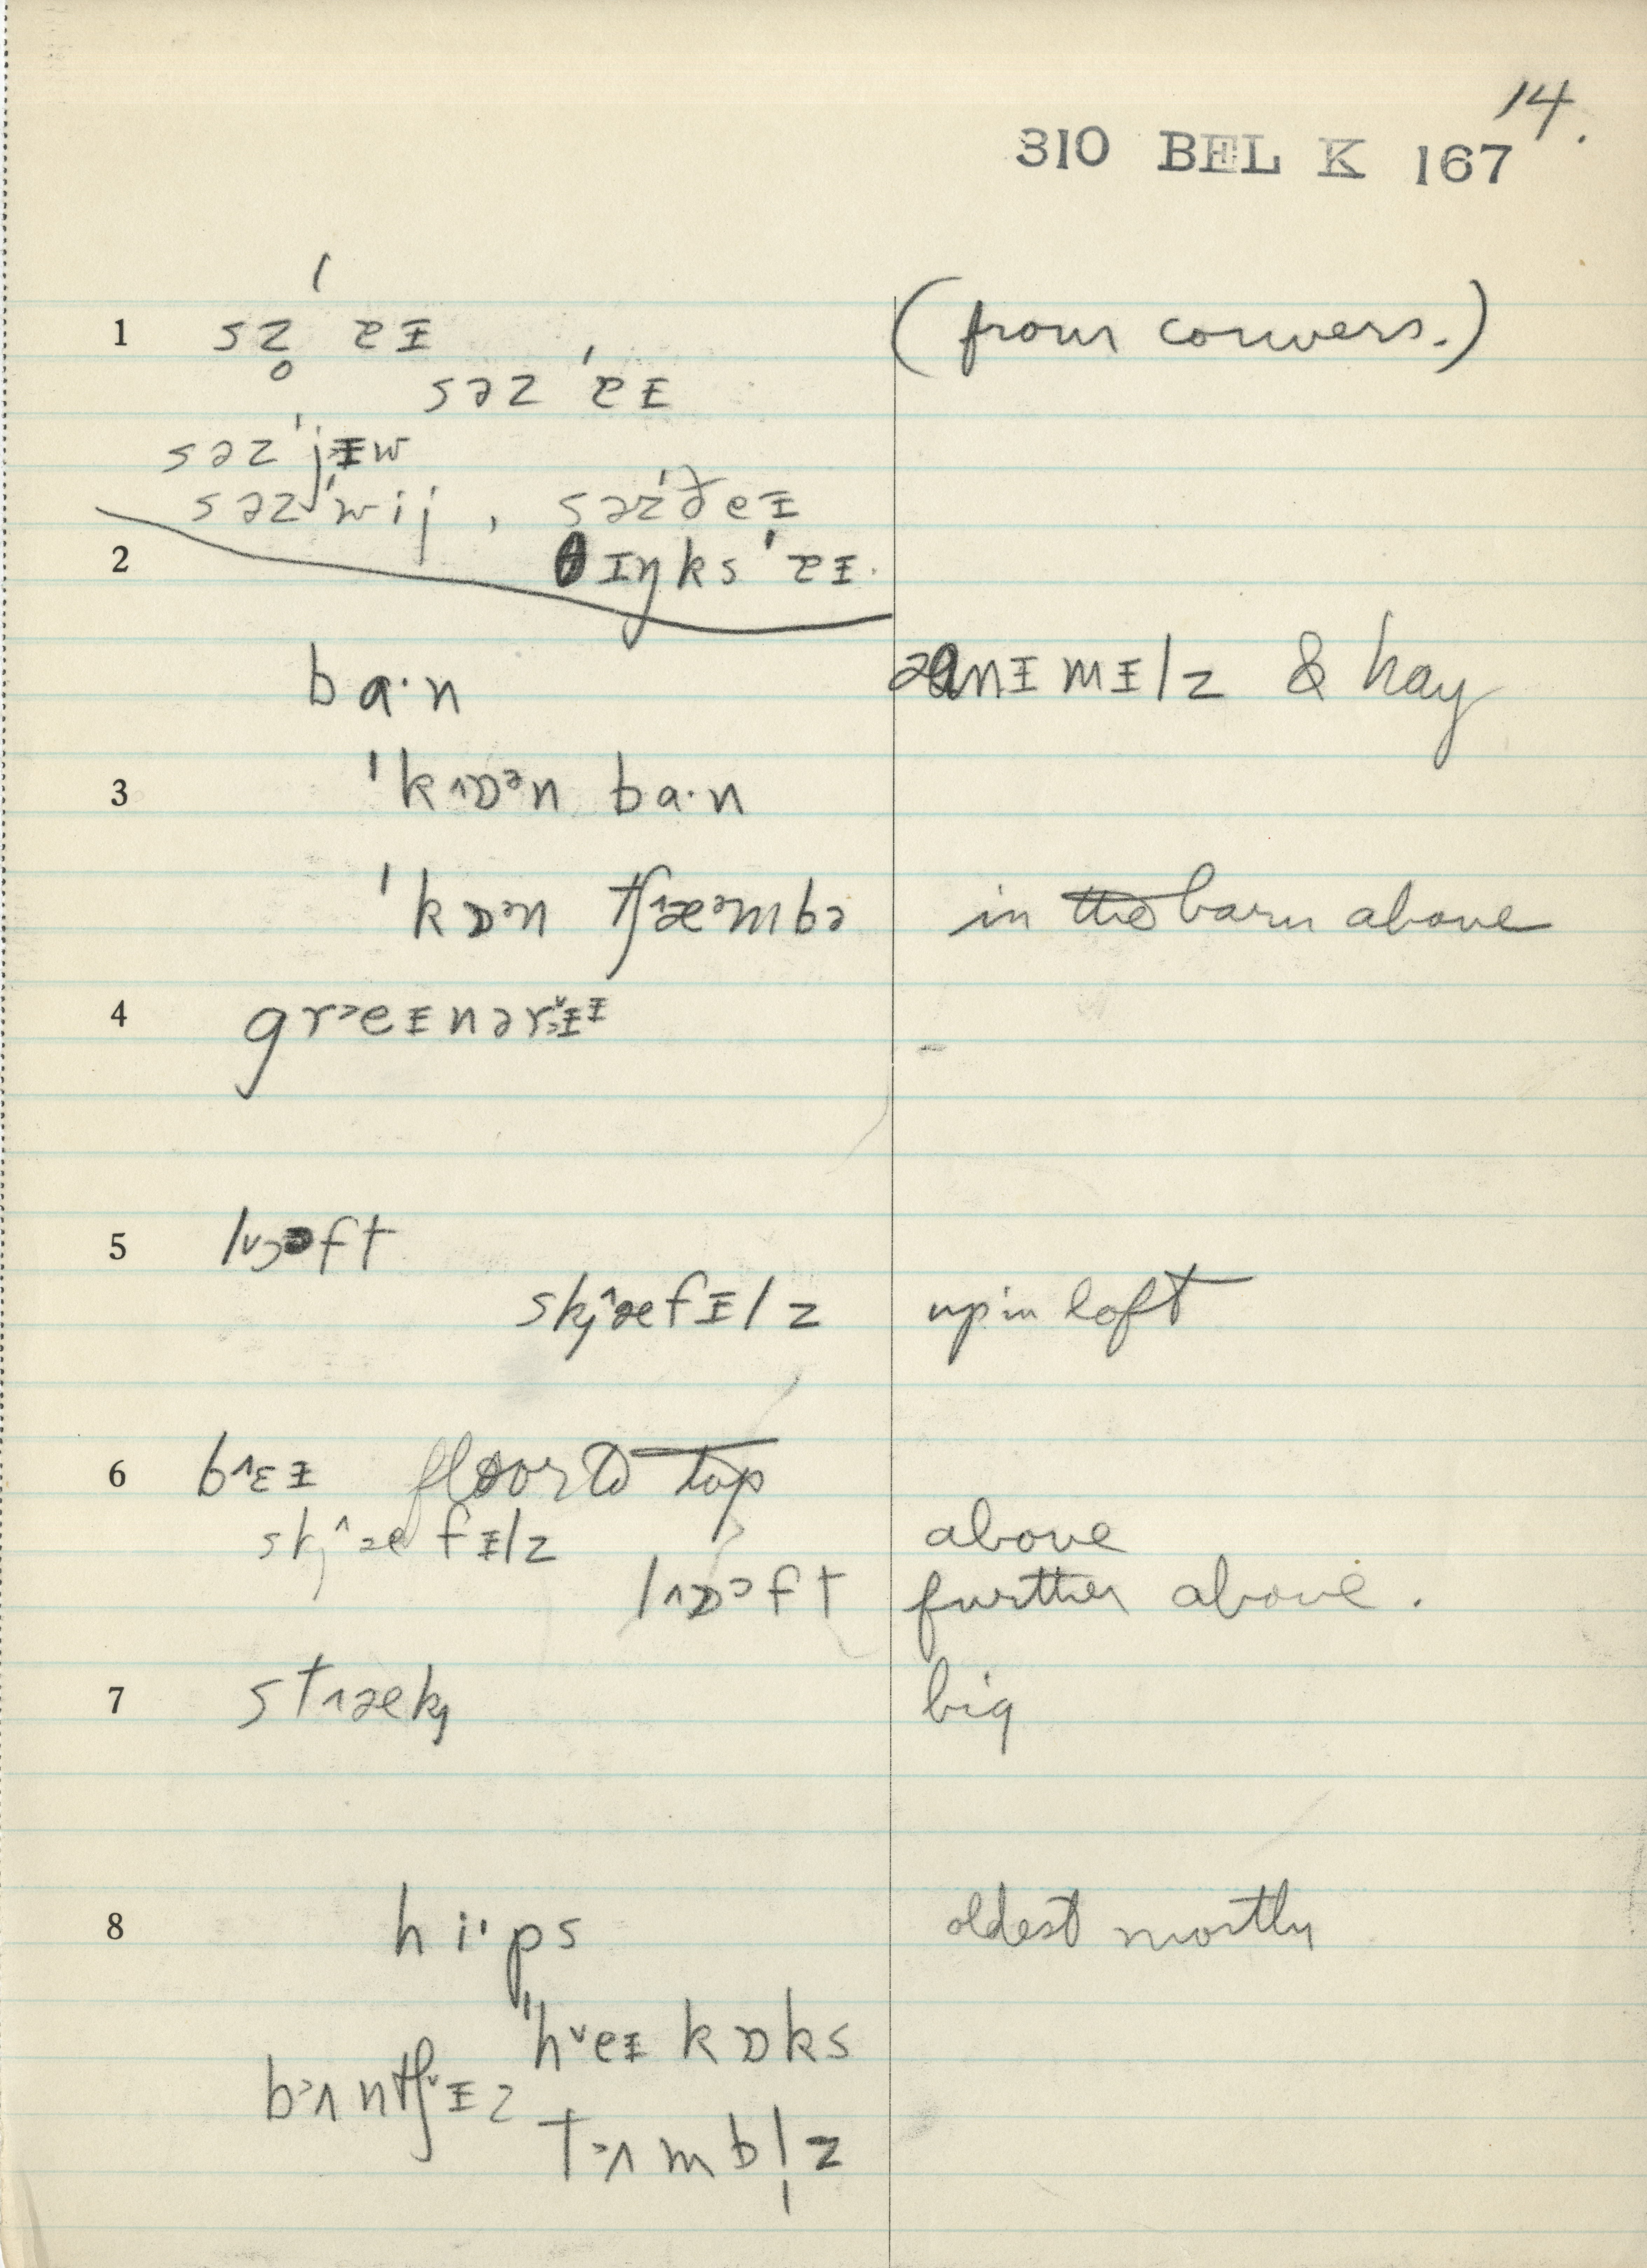 14.
310 BEL K 167
1 sz̥ ˈɐɪ (from convers.)
səz ˈɐɪ
səz ˈjɪw
səz ˈwij, səz ˈðeɪ
2 θɪŋks ˈɐɪ.
ba·n anɪmɪlz & hay
3 ˈk˄ɒᵊn ba·n
ˈkɒᵊn tʃ˄æᵊmbə in the barn above
4 gr˃eɪnər˅ɪɪ
5 l˅ɔᵊft
skj˄æfɪlz up in loft
6 b˄ɛɪ floor to top
skj˄æfɪlz above
l˄ɒᵊft further above.
7 st˄æk big
8 hi·ps oldest mostly
ˈh˅eɪ kɒks
b˃ʌntʃ˅ɪz
t˃ʌmbl̩z